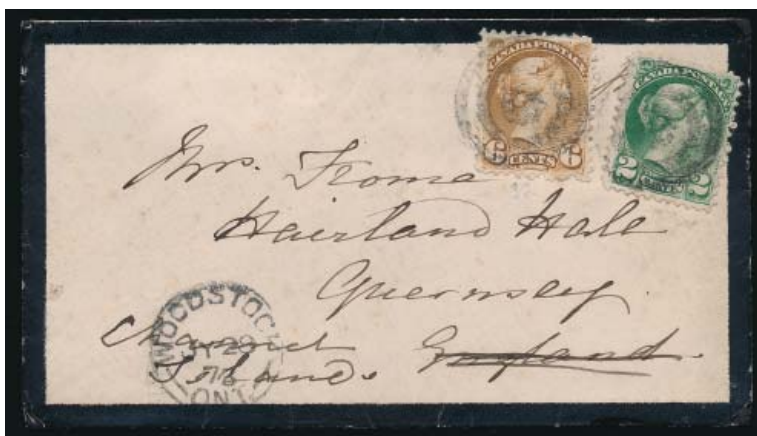 CANADA POSTAGE
6 CENTS 6
CANADA POSTAGE
2 CENTS 2
Mrs. Frome
Hairland Hale
Guernsey.
Channel England.
Islands.
WOODSTOCK
29
ONT